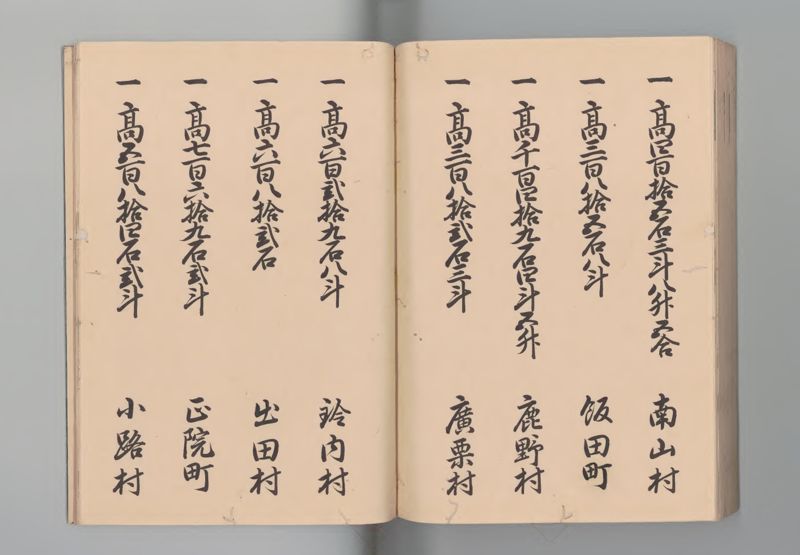 一 高四百拾五石三斗八舛五合 南山村
一 高三百八拾五石八斗 飯田町
一 高千百四拾九石四斗五舛 鹿野村
一 高三百八拾弐石三斗 廣栗村
一 高六百弐拾九石八斗 鈴内村
一 高六百八拾弐石 出田村
一 高七百六拾九石弐斗 正院町
一 高五百八拾四石弐斗 小路村